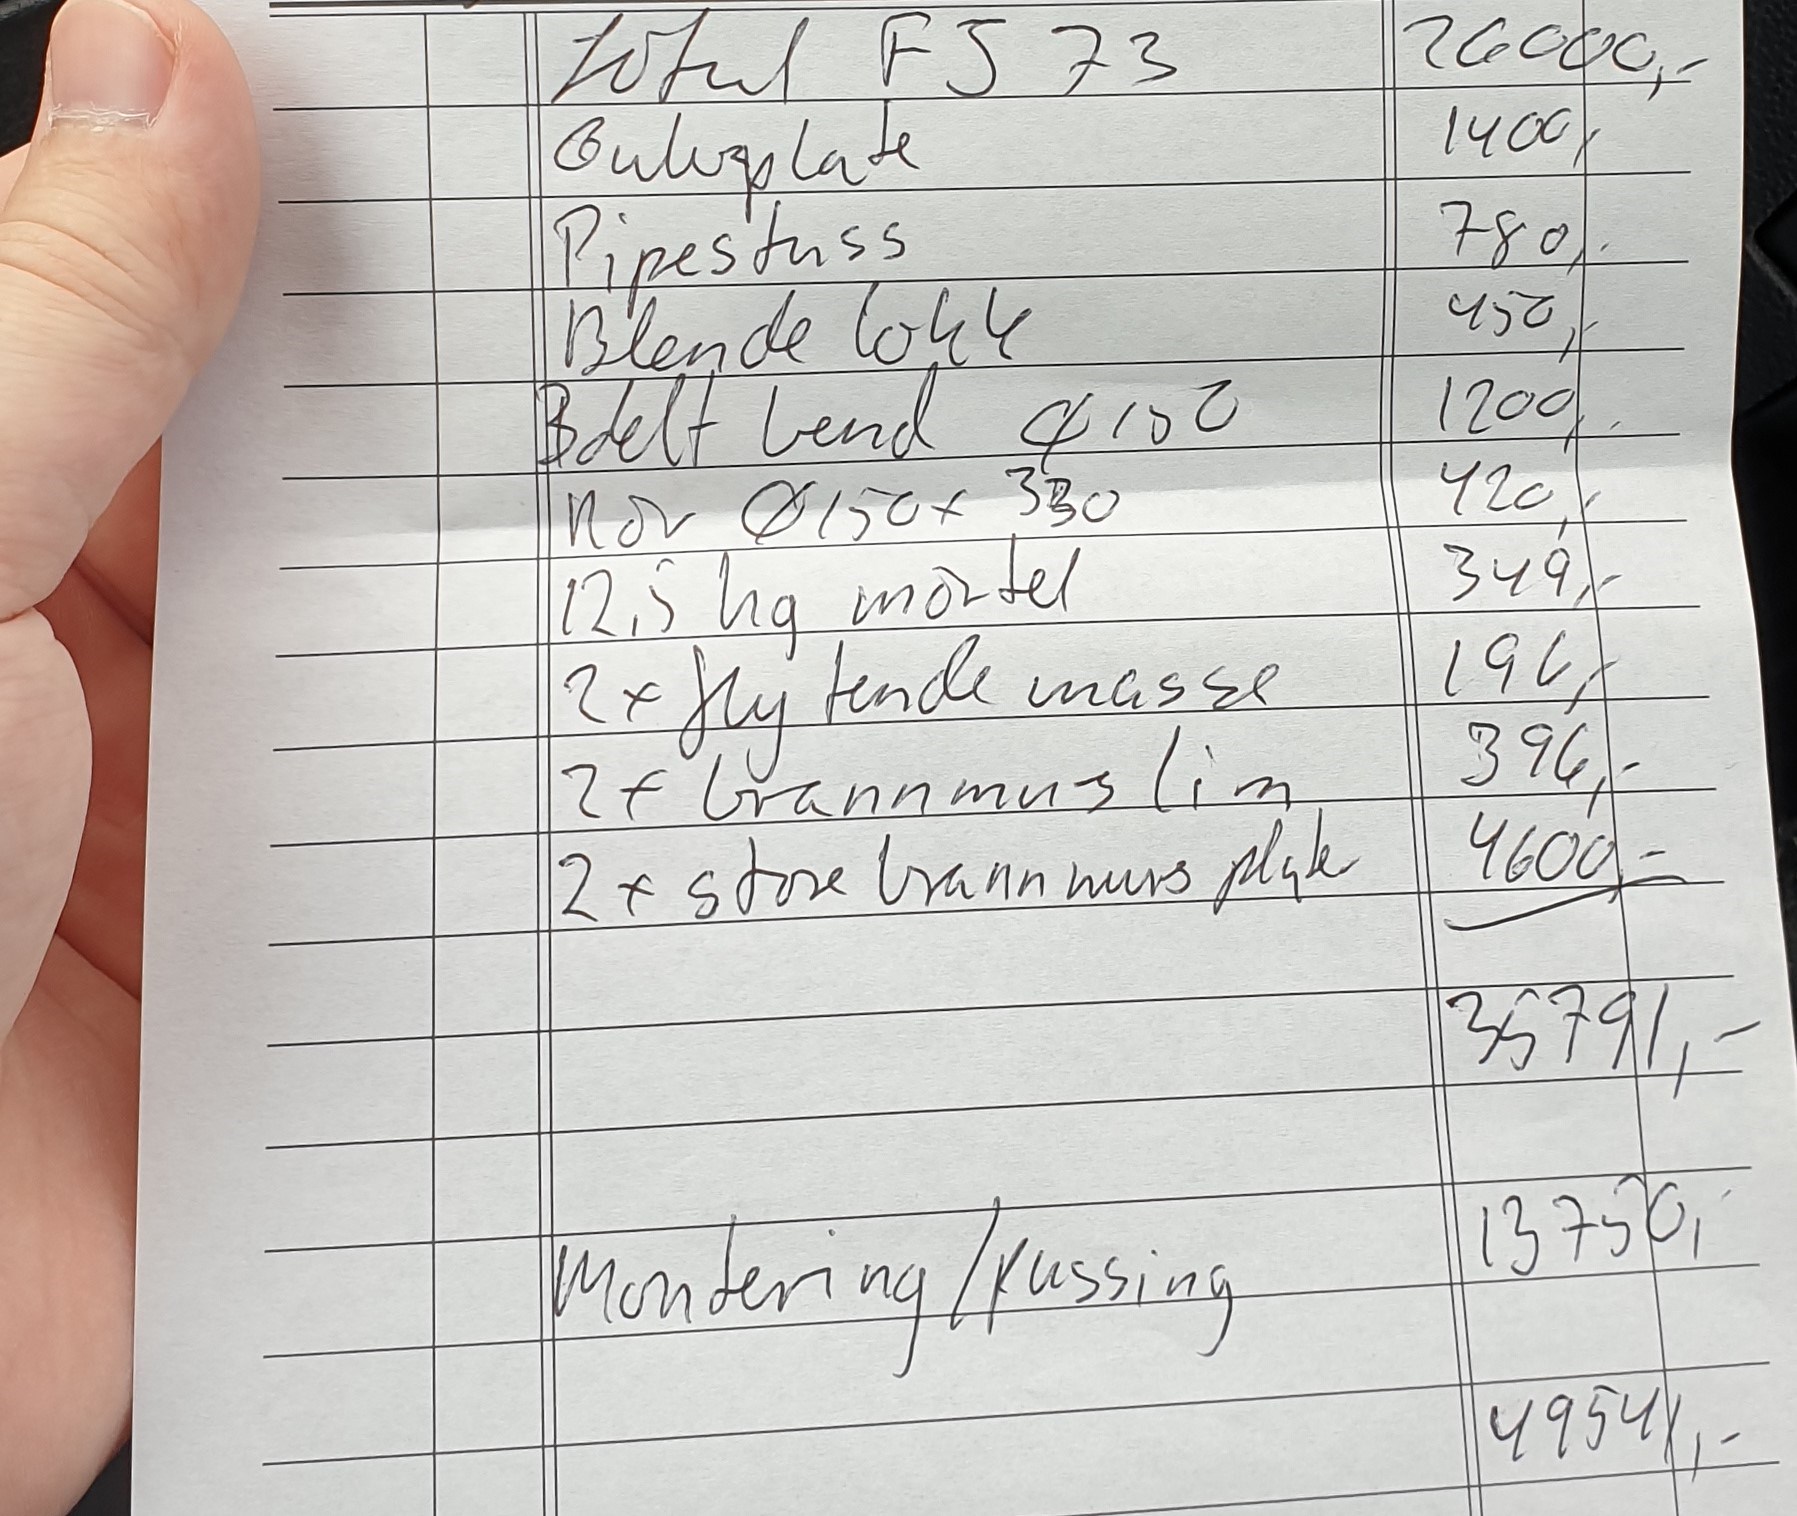 Jøtul FS 73 26000,-
Gulvplate 1400,-
Pipestuss 780,-
Blende lokk 450,-
3delt bend Ø150 1200,-
Rør Ø150x 330 420,-
12,5 kg mørtel 349,-
2x flytende masse 196,-
2x brannmurs lim 396,-
2x store brannmurs plate 4600,-
35791,-
Montering/pussing 13750,-
49541,-